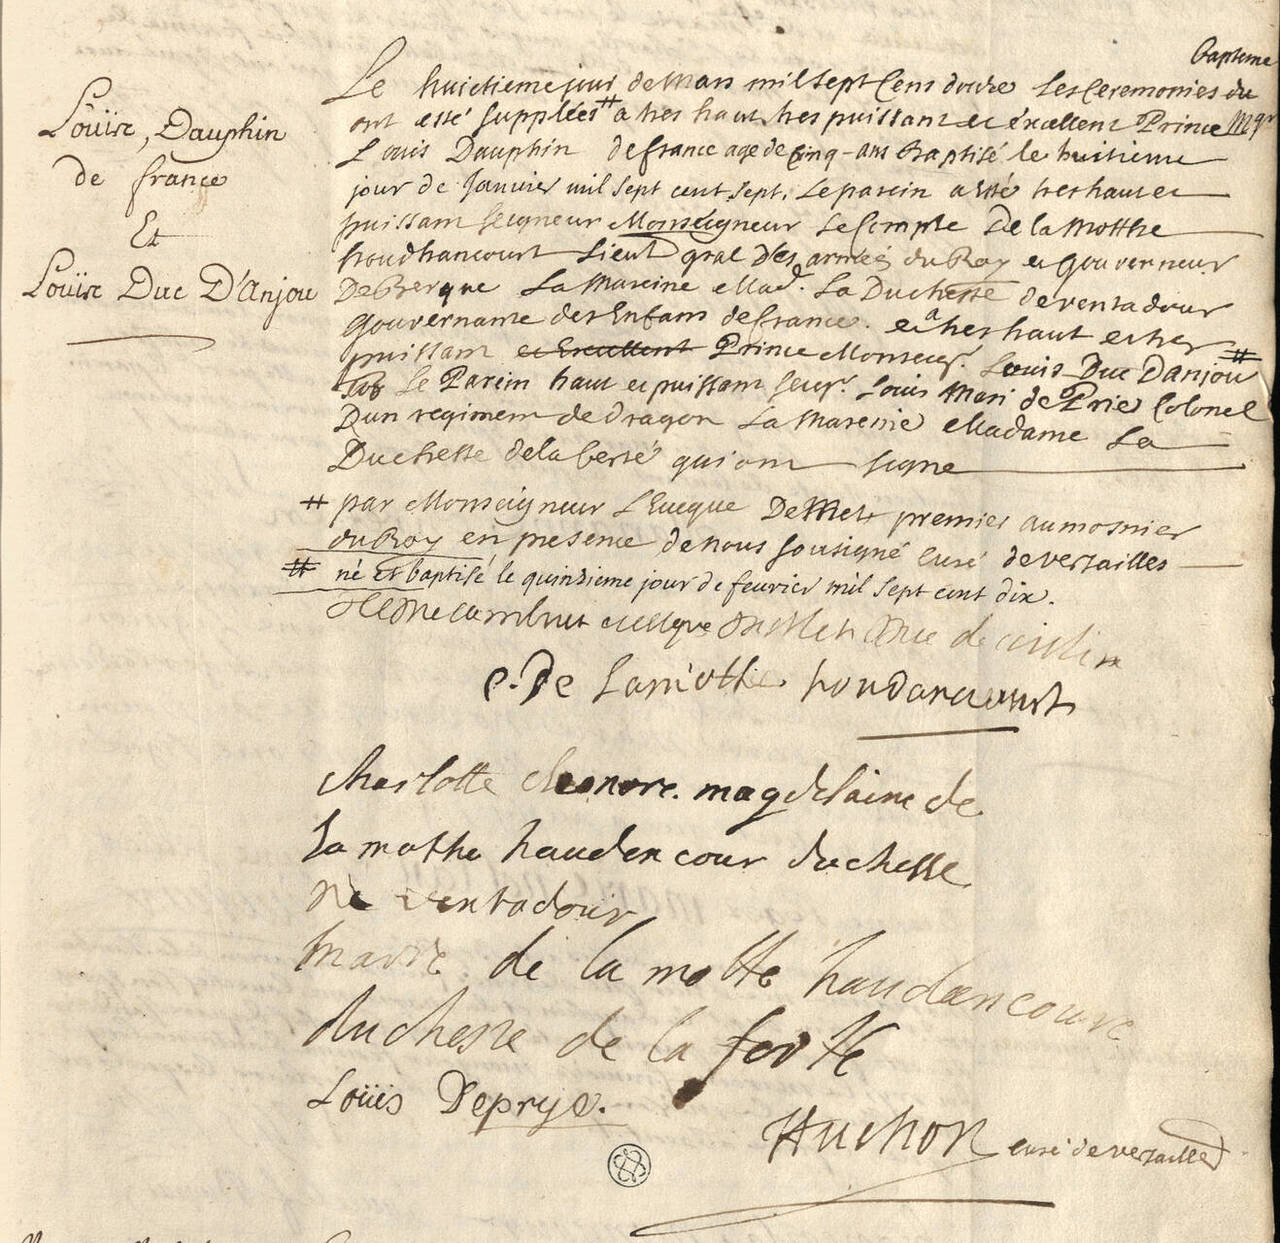 bapteme
Louise, Dauphin
de france
Et
Louise Duc D'Anjou
Le huictieme jour de Mars mil sept Cens douze Les Ceremonies du
ont esté supplées # a tres haut tres puissant et excellent Prince Mgr
Louis Dauphin de france age de cinq ans Baptisé le huitieme
jour de Janvier mil sept cent sept. Le parein a esté tres haut et
puissant seigneur Monseigneur Le Comte De la Motthe
houdhancourt Lieut gral des armées du Roy et gouverneur
De Bergue La Mareine Mad. La Duchesse de ventadour
Gouvername des Enfans de france. et a tres haut et tres
puissant et Excellent Prince Monseigr. Louis Duc Danjou #
Le Parein haut et puissant seigr. Louis Mari de Prie Colonel
Dun regiment de dragon La Mareine Madame La
Duchesse de la ferté qui ont signe
# par Monseigneur L'Eveque De Metz premier aumosnier
du Roy en presence de nous sousigné curé de versailles
# né et baptisé le quinzieme jour de fevrier mil sept cent dix.
H ducambout evesque de Metz duc de coislin
C. De Lamothe houdancourt
charlotte eleonore magdelaine de
La mothe haudencour duchesse
de ventadour
marie de la motte haudancourt
duchesse de la ferte
Loüis Deprye.
Huchon curé de versailles